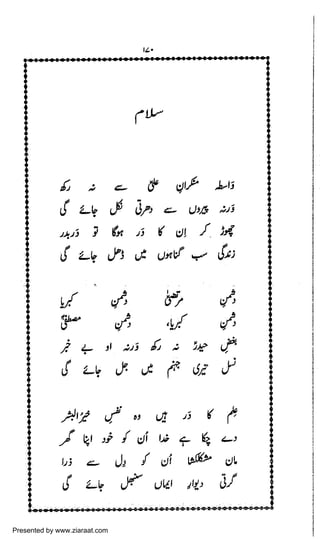 ۱۷۰
سلام
واسطہ منکرانِ علیؑ سے نہ رکھ
ورنہ پیروں سے دھرتی نکل جائے گی
چھوڑ کر اِن کا در ہوگا تو دربدر
زندگی سب گناہوں میں ڈھل جائے گی
دشمنِ مرتضیٰؑ دشمنِ کبریا
دشمنِ کبریا، دشمنِ مصطفیؐ
بغضِ حیدرؑ نہ رکھ ورنہ او بے خبر
نسل تیری جہنم میں جل جائے گی
عِلم کا در ہیں وہ نفسِ خیرُالبشر
دے چکا ہے خدا اُن کو خود اپنا گھر
مان مشکلکشا اُن کو دِل سے ذرا
گرتی دیوارِ ایماں سنبھل جائے گی
Presented by www.ziaraat.com